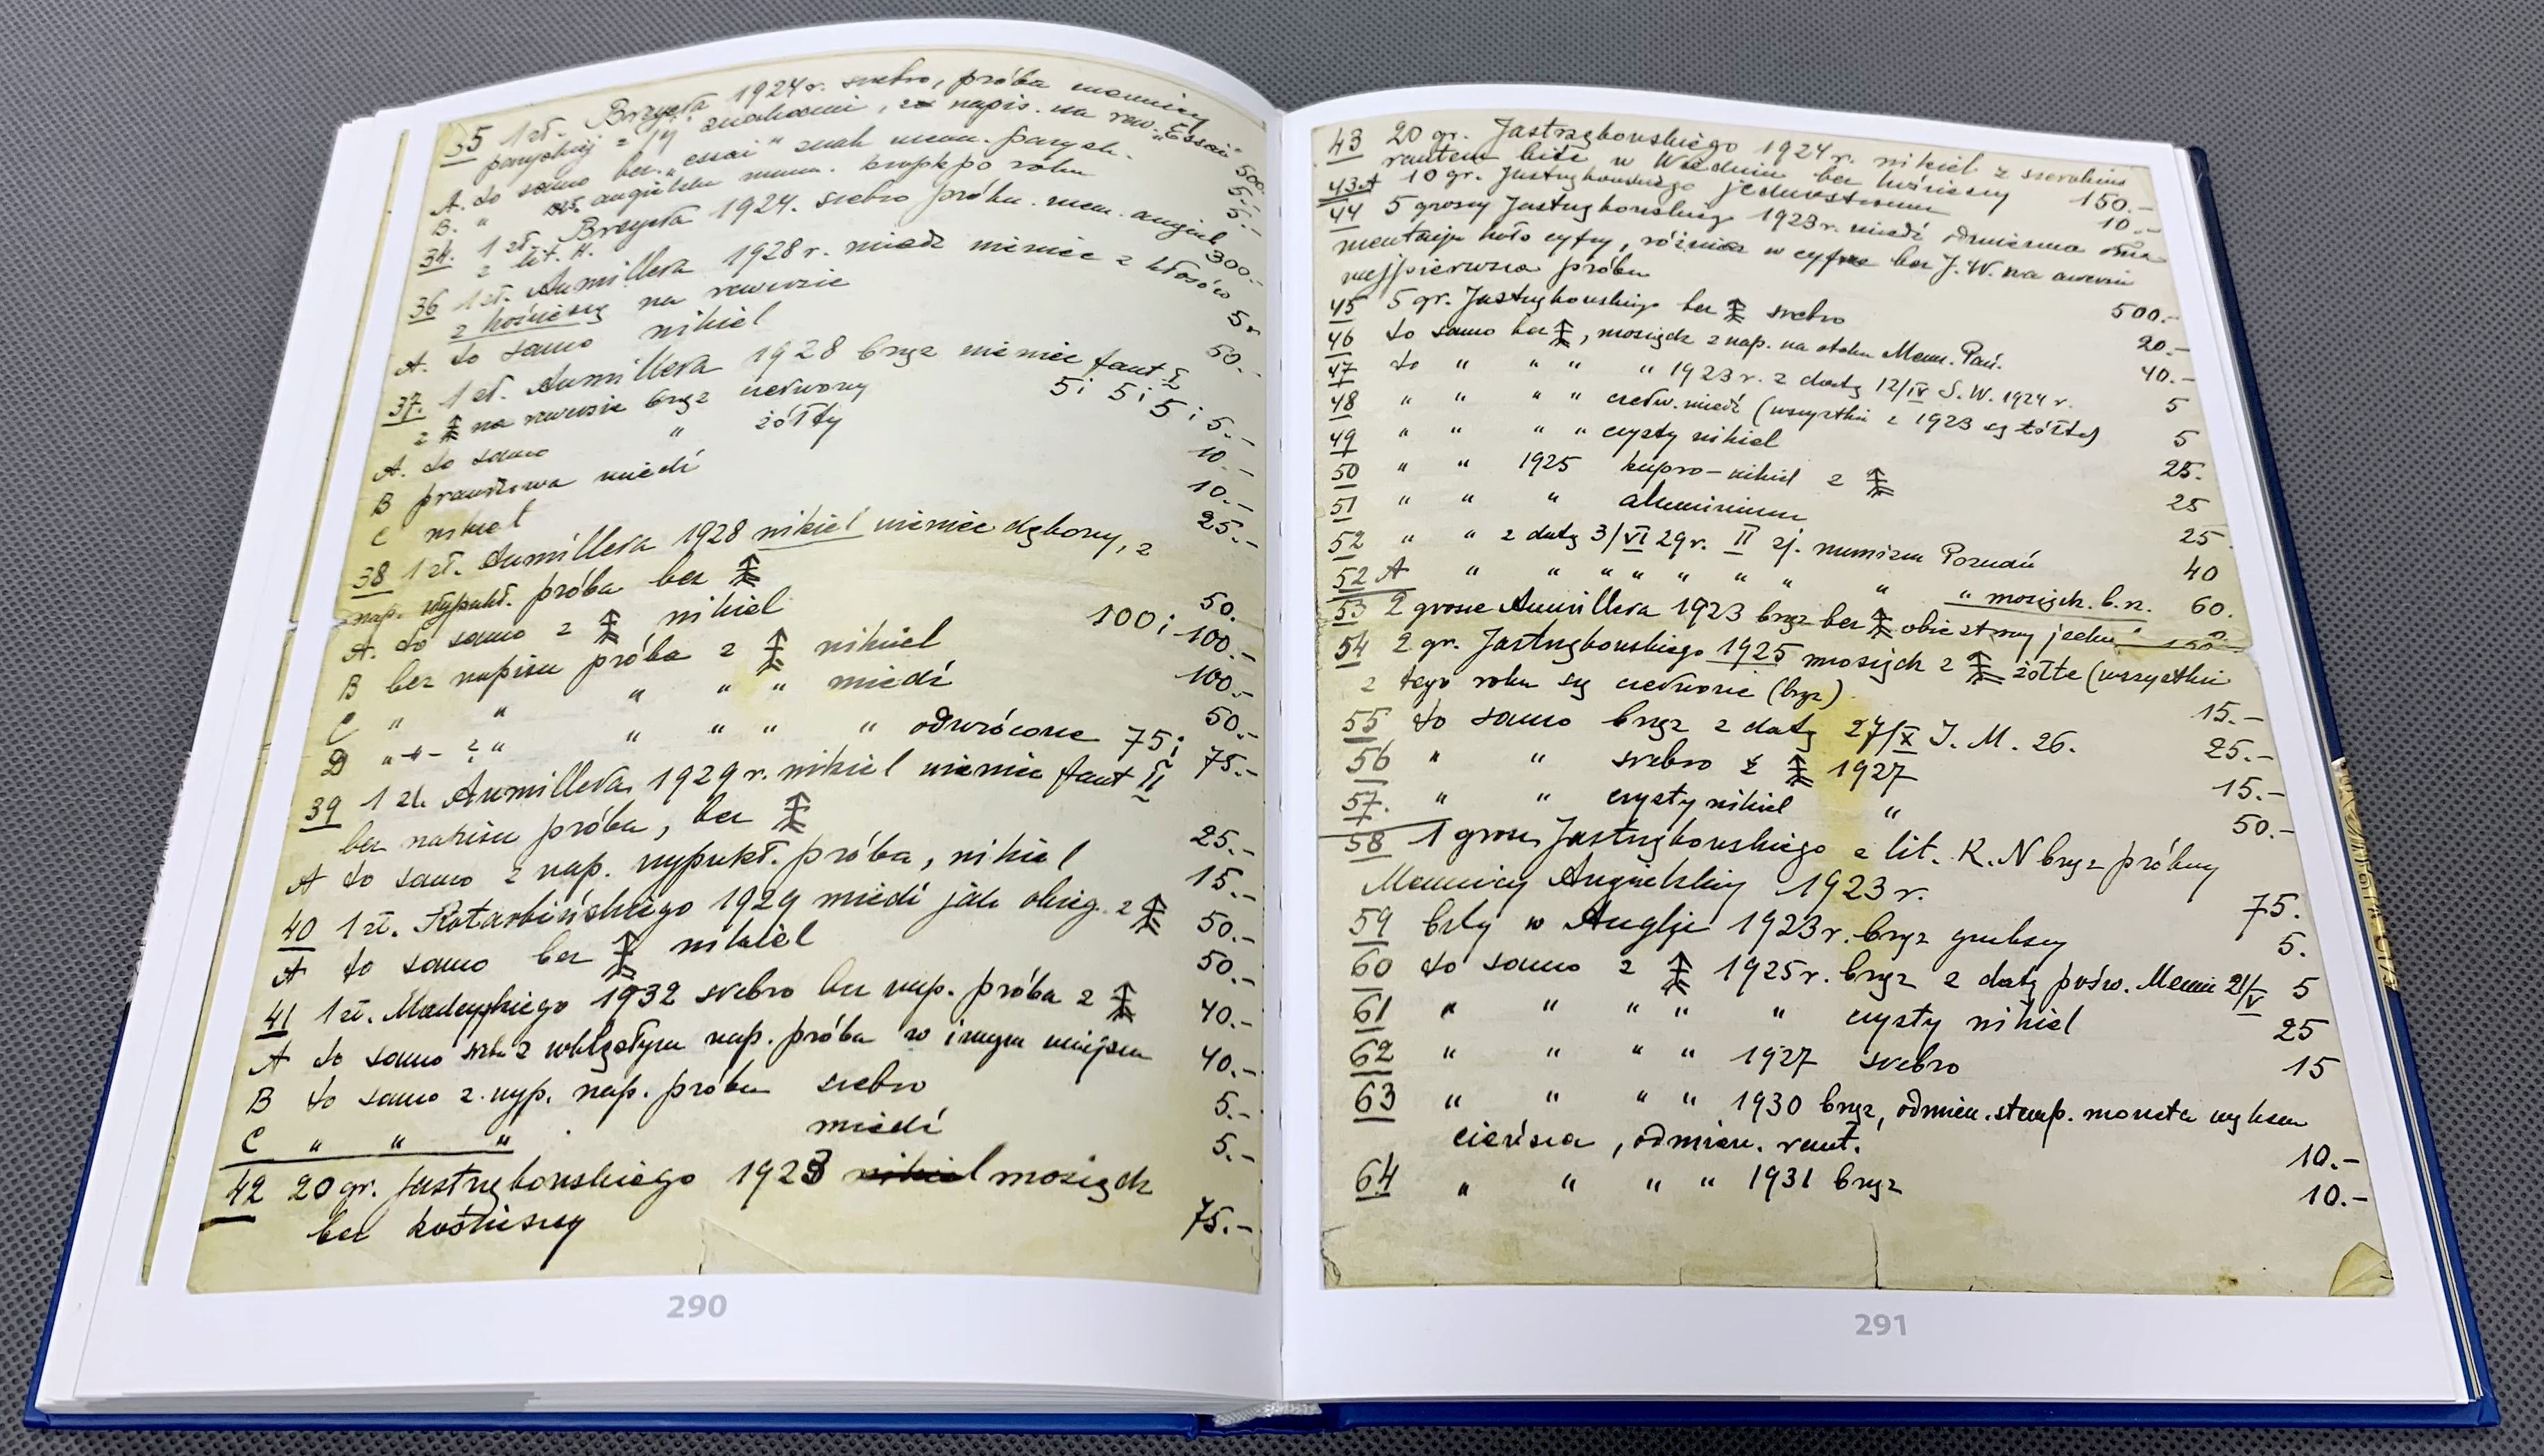 35 1 zł. Brzęka 1924 r. srebro, próba mennicy
paryskiej z 14 znakami, z napis. na rew. "Essai" 500.-
A. to samo bez "essai" znak menn. parysk. 5.-
B. " angielska menn. kropk po roku 5.-
34. 1 zł. Brzęka 1924. srebro próba. men. angiel.
z lit. H. 300.-
36 1 zł. Aumillera 1928 r. miedź wieniec z kłosów
z kośćieszą na rewersie
A. to samo nikiel 50.-
37. 1 zł. Aumillera 1928 brąz wieniec fant I
z na rewersie brąz czerwony 5 i 5 i 5 i 5.-
A. to samo " żółty 10.-
B prawdziwa miedź 10.-
C nikiel 25.-
38 1 zł. Aumillera 1928 nikiel wieniec dębowy, z
nap. wypukł. próba bez 50.
A. to samo z nikiel 100 i 100.-
B bez napisu próba z nikiel 100.-
C " " " " " miedź 50.-
D " " " " " " odwrócone 75 i 75.-
39 1 zł. Aumillera 1929 r. nikiel wieniec fant II
bez napisu próba, bez 25.-
A to samo z nap. wypukł. próba, nikiel 15.-
40 1 zł. Kotarbińskiego 1929 miedź jak obieg. z 50.-
A to samo bez nikiel 50.-
41 1 zł. Madeyskiego 1932 srebro bez nap. próba z 40.-
A to samo z wklęsłym nap. próba w innym miejscu 40.-
B to samo z wyp. nap. próba srebro 5.-
C " " " miedź 5.-
42 20 gr. Jastrzębowskiego 1923 nikiel mosiądz
bez kościeszy 75.-
290
43 20 gr. Jastrzębowskiego 1924 r. nikiel z szerokim
rantem bite w Wiedniu bez kościeszy 150.-
43A 10 gr. Jastrzębowskiego jednostronna 10.-
44 5 groszy Jastrzębowskiego 1923 r. miedź odmienna orna-
mentacja koło cyfry, różnica w cyfrze bez J. W. na awersie
najpierwsza próba 500.-
45 5 gr. Jastrzębowskiego bez srebro 20.-
46 to samo bez , mosiądz z nap. na otoku Menn. Pań. 40.-
47 to " " " " 1923 r. z datą 12/IV S. W. 1924 r. 5
48 " " " " czerw. miedź (wszystkie z 1923 są żółte) 5
49 " " " " czysty nikiel 25.
50 " " 1925 kupro-nikiel z 25
51 " " " aluminium 25
52 " " z datą 3/VI 29 r. II zj. numizm Poznań 40
52 A " " " " " " " " " mosiądz. b. n. 60.
53 2 grosze Aumillera 1923 brąz bez obie strony jedn.
54 2 gr. Jastrzębowskiego 1925 mosiądz z żółte (wszystkie
z tego roku są czerwone (brąz) 15.-
55 to samo brąz z datą 27/X J. M. 26. 25.-
56 " " srebro z 1927 15.-
57. " " czysty nikiel " 50.-
58 1 grosz Jastrzębowskiego z lit. K. N brąz próbny
Mennicy Angielskiej 1923 r. 75.
59 bity w Anglji 1923 r. brąz grubszy 5.
60 to samo z 1925 r. brąz z datą pośw. Menn 21/V 5
61 " " " " " czysty nikiel 25
62 " " " " 1927 srebro 15
63 " " " " 1930 brąz, odmien. stemp. moneta większa
cieńsza, odmien. rant. 10.-
64 " " " " 1931 brąz 10.-
291